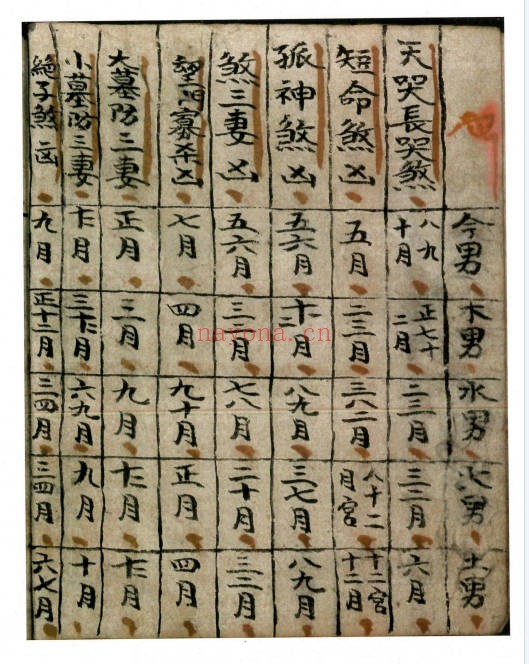 今男 木男 水男 火男 土男
天哭長哭煞 八九十月 正七十二月 二三月 三二月 六月
短命煞凶 五月 二三月 三八二月 八十二月宮 十二宮十二月
孤神煞凶 五六月 八九月 三七月 八九月
煞三妻凶 五六月 七八月 二十月 三二月
望門寡杀凶 七月 四月 九十月 正月 四月
大墓防三妻 正月 三月 九月 十二月
小墓防三妻 六九月 九月 十月
絕子煞凶 九月 正十二月 二四月 三四月 六七月
nayona.cn